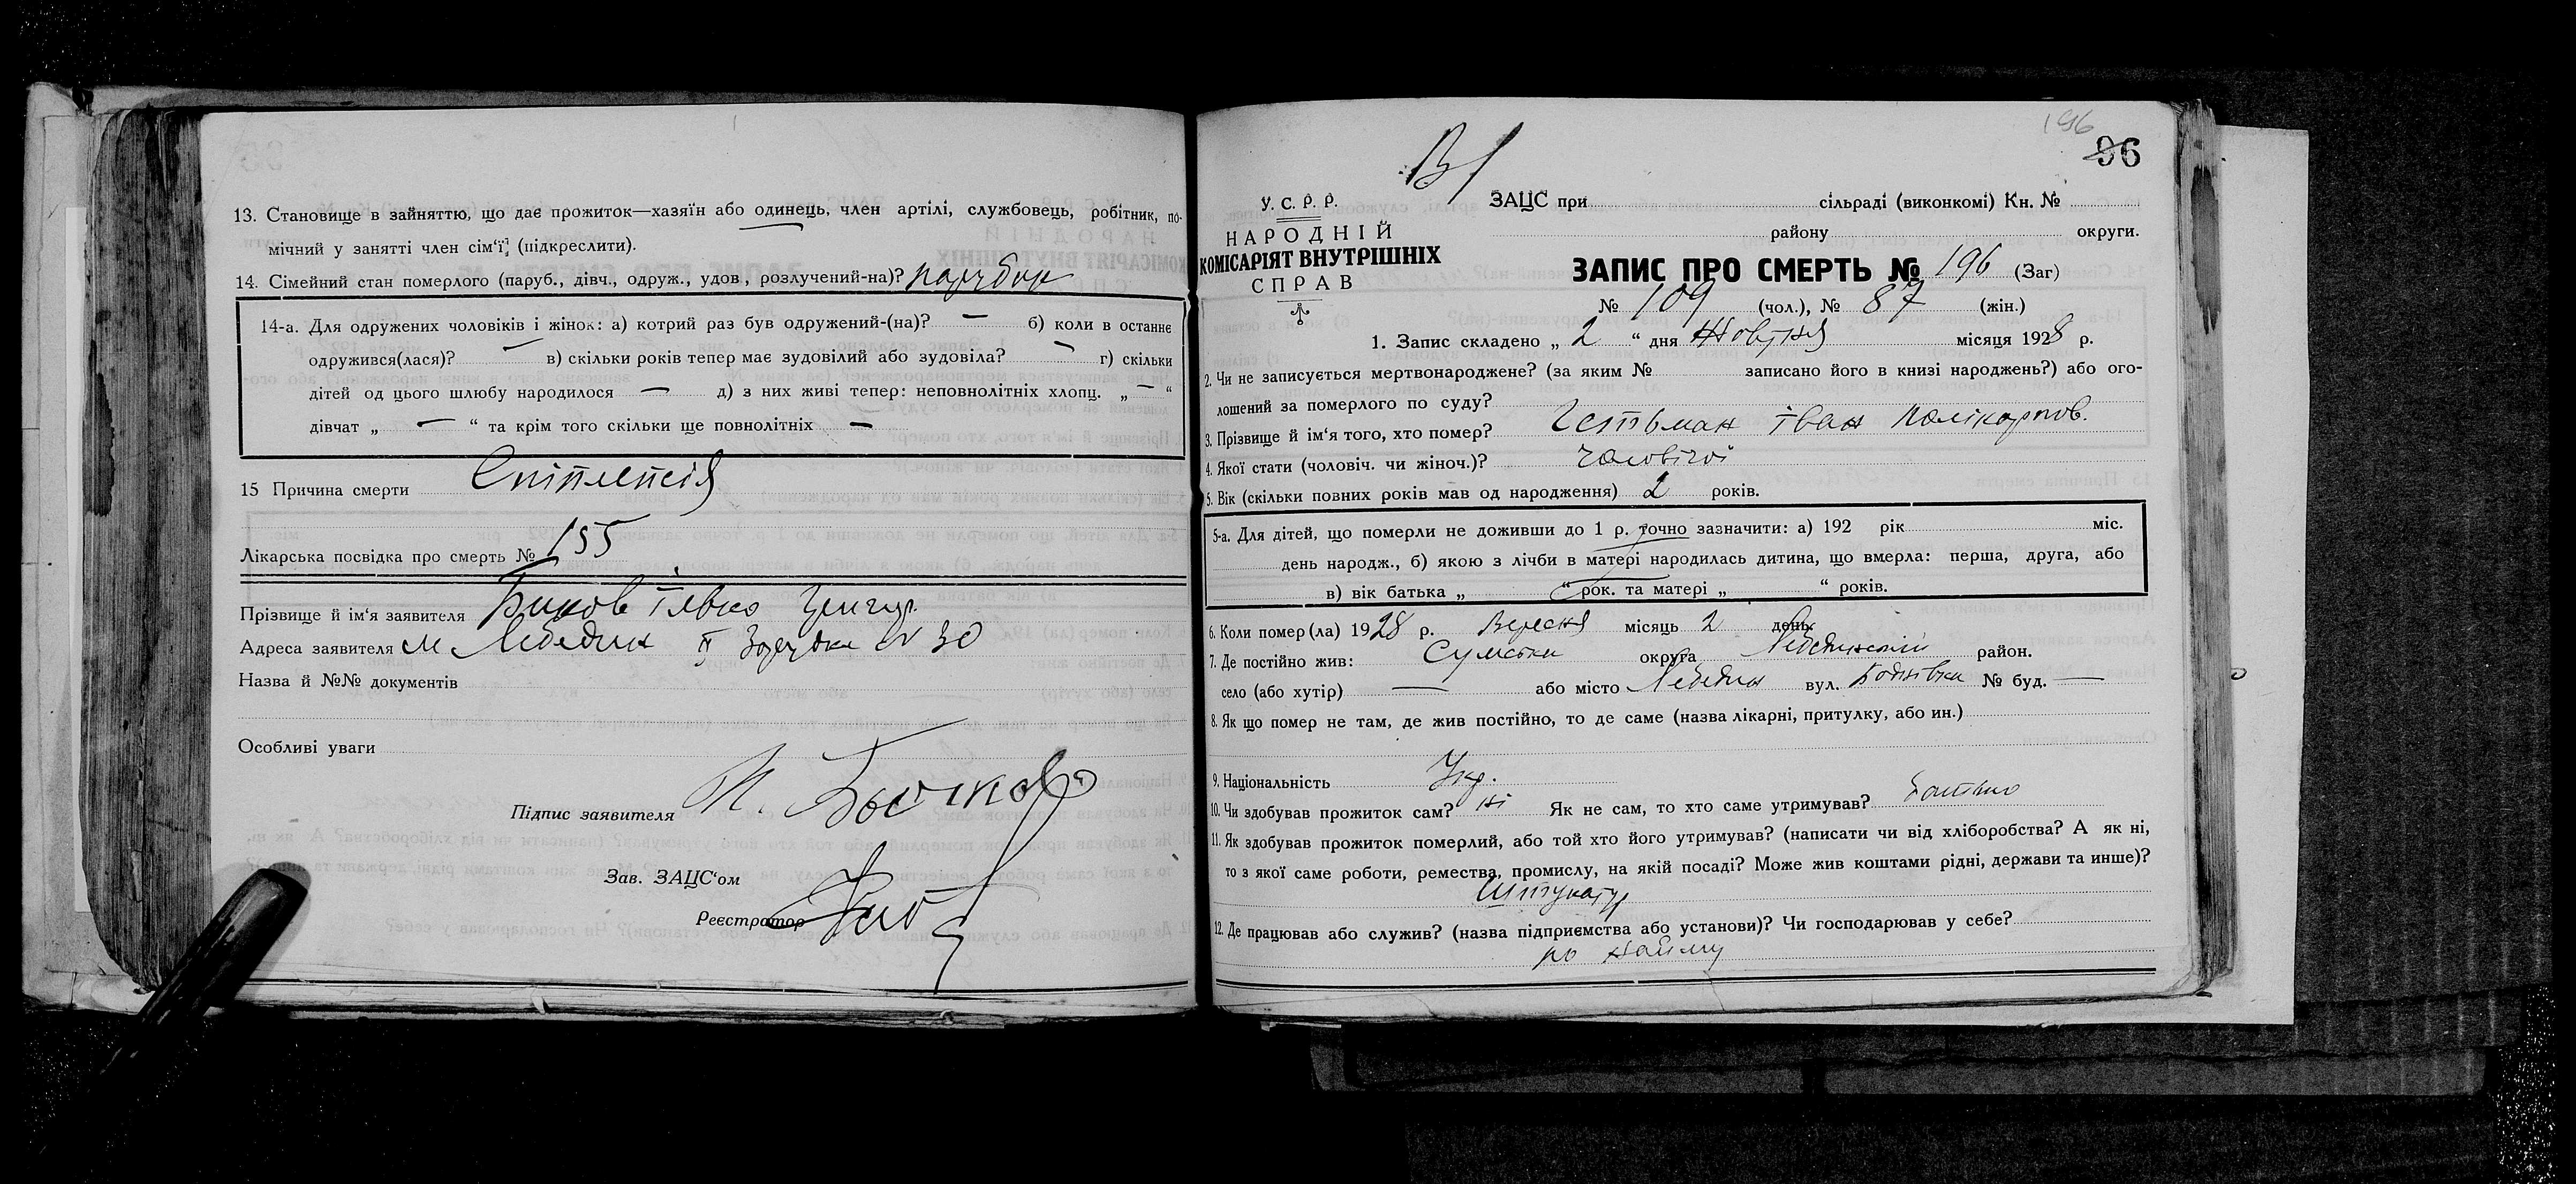 13. Становище в зайняттю, що дає прожиток—хазяїн або одинець, член артілі, службовець, робітник, по-
мічний у занятті член сім'ї (підкреслити).
14. Сімейний стан померлого (паруб., дівч., одруж., удов., розлучений-на)? парубок
14-а. Для одружених чоловіків і жінок: а) котрий раз був одружений-(на)? — б) коли в останнє
одружився(лася)? — в) скільки років тепер має зудовілий або зудовіла? — г) скільки
дітей од цього шлюбу народилося — д) з них живі тепер: неповнолітніх хлопц. „ — “
дівчат „ — “ та крім того скільки ще повнолітніх —
15 Причина смерти Епілепсія
Лікарська посвідка про смерть № 155
Прізвище й ім'я заявителя
Адреса заявителя м Лебедин ІІ № 30
Назва й №№ документів
Особливі уваги
Підпис заявителя
Зав. ЗАЦС'ом
Реєстратор
196
96
В/
У. С. Р. Р.
НАРОДНІЙ
КОМІСАРІЯТ ВНУТРІШНІХ
СПРАВ
ЗАЦС при сільраді (виконкомі) Кн. №
району округи.
ЗАПИС ПРО СМЕРТЬ № 196 (Заг)
№ 109 (чол.), № 87 (жін.)
1. Запис складено „ 2 “ дня Жовтня місяця 1928 р.
2. Чи не записується мертвонароджене? (за яким № записано його в книзі народжень?) або ого-
лошений за померлого по суду?
3. Прізвище й ім'я того, хто помер? Гетьман Іван Полікарпов.
4. Якої стати (чоловіч. чи жіноч.)? чоловічої
5. Вік (скільки повних років мав од народження) 2 років.
5-а. Для дітей, що померли не доживши до 1 р. точно зазначити: а) 192 рік міс.
день народж., б) якою з лічби в матері народилась дитина, що вмерла: перша, друга, або
в) вік батька „ “ рок. та матері „ “ років.
6. Коли помер(ла) 1928 р. Вересня місяць 2 день
7. Де постійно жив: Сумська округа Лебединський район.
село (або хутір) — або місто Лебедин вул. № буд. —
8. Як що помер не там, де жив постійно, то де саме (назва лікарні, притулку, або ин.)
9. Національність Укр.
10. Чи здобував прожиток сам? ні Як не сам, то хто саме утримував? батько
11. Як здобував прожиток померлий, або той хто його утримував? (написати чи від хліборобства? А як ні,
то з якої саме роботи, ремества, промислу, на якій посаді? Може жив коштами рідні, держави та инше)?
Штукатур
12. Де працював або служив? (назва підприємства або установи)? Чи господарював у себе?
по найму